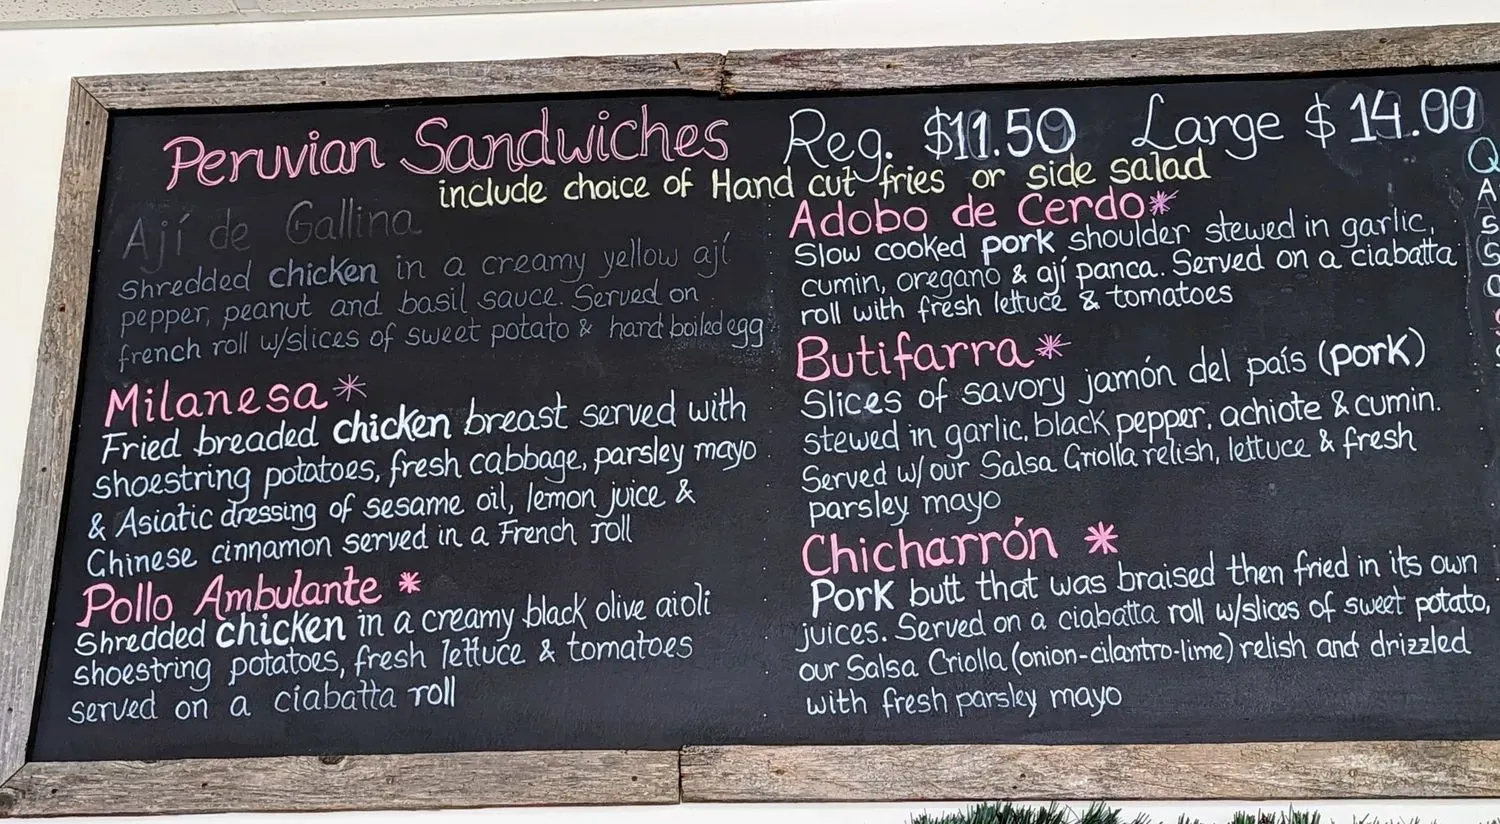 Peruvian Sandwiches Reg. $11.50 Large $14.00
include choice of Hand cut fries or side salad
Ají de Gallina
Shredded chicken in a creamy yellow ají
pepper, peanut and basil sauce. Served on
french roll w/slices of sweet potato & hard boiled egg
Milanesa*
Fried breaded chicken breast served with
shoestring potatoes, fresh cabbage, parsley mayo
& Asiatic dressing of sesame oil, lemon juice &
Chinese cinnamon served in a French roll
Pollo Ambulante *
Shredded chicken in a creamy black olive aioli
shoestring potatoes, fresh lettuce & tomatoes
served on a ciabatta roll
Adobo de Cerdo*
Slow cooked pork shoulder stewed in garlic,
cumin, oregano & ají panca. Served on a ciabatta
roll with fresh lettuce & tomatoes
Butifarra*
Slices of savory jamón del país (pork)
stewed in garlic, black pepper, achiote & cumin.
Served w/our Salsa Criolla relish, lettuce & fresh
parsley mayo
Chicharrón *
Pork butt that was braised then fried in its own
juices. Served on a ciabatta roll w/slices of sweet potato,
our Salsa Criolla (onion-cilantro-lime) relish and drizzled
with fresh parsley mayo